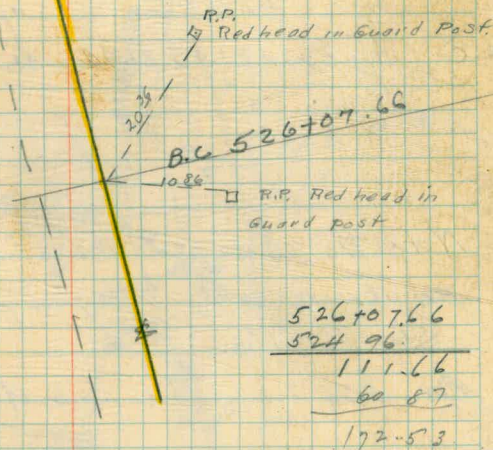 R.P.
Red head in Guard Post.
20/34
B.C 526+07.66
10.86
R.P. Red head in
Guard post
526+07.66
524 96.
111.66
60 87
172.53